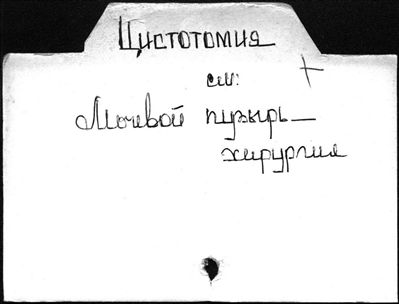 Цистотомия
см:
Мочевой пузырь –
хирургия